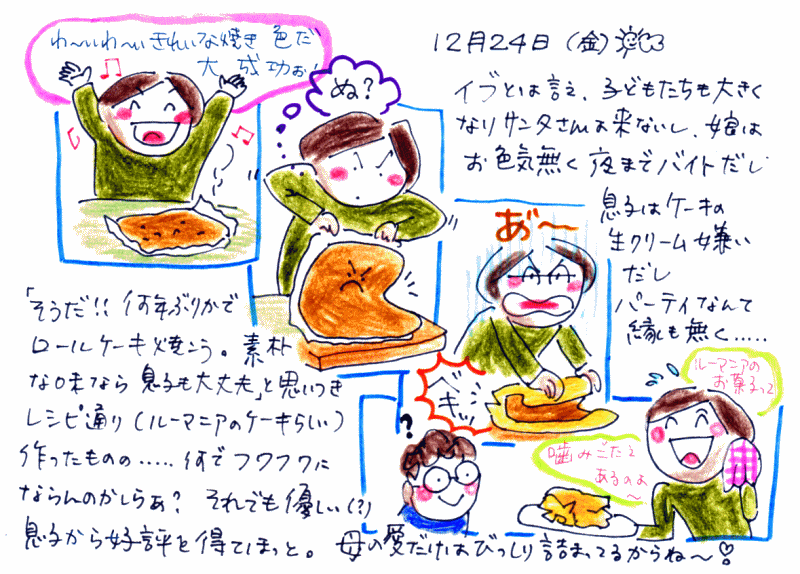 12月24日(金)
イブとは言え、子どもたちも大きく
なりサンタさんは来ないし、娘は
お色気無く夜までバイトだし
息子はケーキの
生クリーム嫌い
だし
パーティなんて
縁も無く‥‥‥
わ〜いわ〜いきれいな焼き色だ
大成功ぉ!
ぬ?
あ゛〜
ベキッ
「そうだ!!何年ぶりかで
ロールケーキ焼こう。素朴
な味なら息子も大丈夫」と思いつき
レシピ通り(ルーマニアのケーキらしい)
作ったものの‥‥‥何でフワフワに
ならんのかしらぁ?それでも優しい(?)
息子から好評を得てほっと。母の愛だけはびっしり詰まってるからね〜!
?
ルーマニアの
お菓子って
噛みごたえ
あるのよ
〜